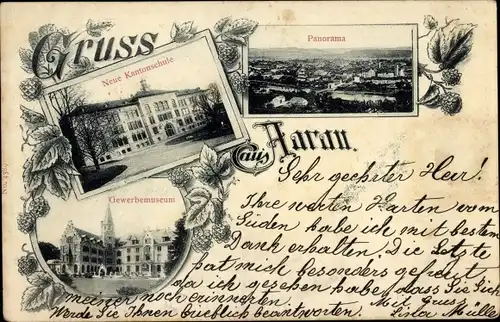 Gruss
aus Aarau.
Neue Kantonschule
Panorama
Gewerbemuseum
Sehr geehrter Herr!
Ihre werten Karten vom
Süden habe ich mit bestem
Dank erhalten. Die Letzte
hat mich besonders gefreut
da ich gesehen habe, dass Sie Sich
meiner noch erinnerten.
Mit Gruss
Werde Sie Ihnen beantworten.
Müller